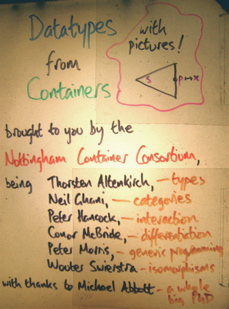 Datatypes
from
Containers
with
pictures!
S
brought to you by the
Nottingham Container Consortium,
being Thorsten Altenkirch, — types
Neil Ghani, — categories
Peter Hancock, — interaction
Conor McBride, — differentiation
Peter Morris, — generic programming
Wouter Swierstra — isomorphisms
with thanks to Michael Abbott — a whole
big PhD